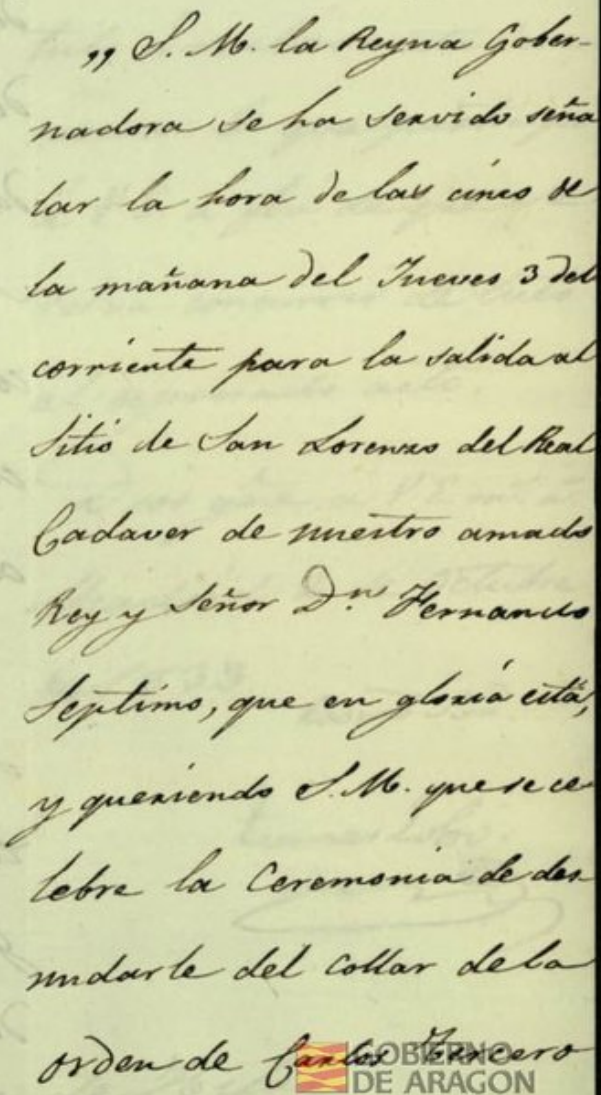 „ S. M. la Reyna Gober-
nadora se ha servido seña
lar la hora de las cinco de
la mañana del Jueves 3 del
corriente para la salida al
Sitio de San Lorenzo del Real
Cadaver de nuestro amado
Rey y Señor Dn. Fernando
Septimo, que en gloria está,
y queriendo S. M. que se ce
lebre la Ceremonia de des-
nudarle del Collar de la
orden de Carlos Tercero
GOBIERNO
DE ARAGON